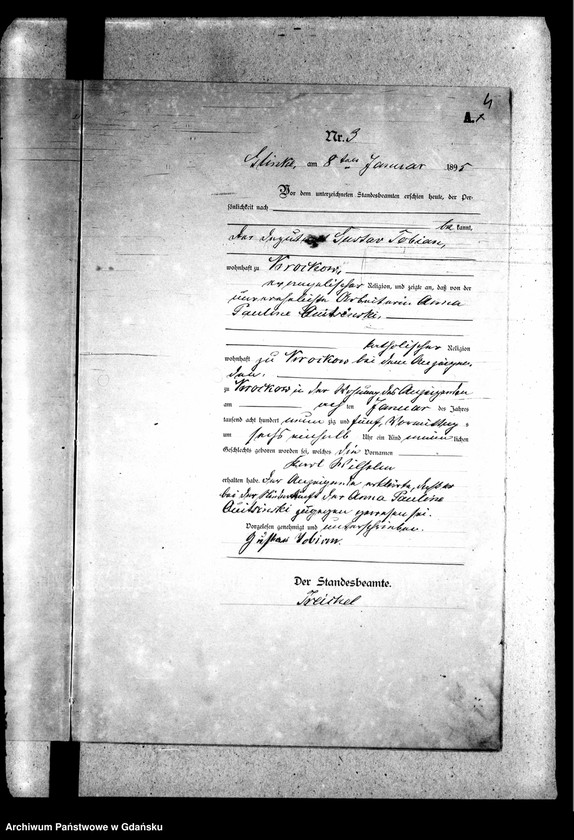 4
A.
Nr. 3
Glinke, am 8ten Januar 1895
Vor dem unterzeichneten Standesbeamten erschien heute, der Per-
sönlichkeit nach
bekannt,
der Gustav Tobian,
wohnhaft zu Krockow,
evangelischer Religion, und zeigte an, daß von der
unverehelichte Arbeiterin Anna
Pauline
katholischer Religion
wohnhaft zu Krockow bei dem Anzeigen-
den.
zu Krockow in der Wohnung des Anzeigenden
am ten Januar des Jahres
tausend acht hundert neun zig und fünf, Vormittags
um sechs einhalb Uhr ein Kind männlichen
Geschlechts geboren worden sei, welches die Vornamen
Karl Wilhelm
erhalten habe. Der Anzeigende erklärte, daß er
bei der Niederkunft der Anna Pauline
zugegen gewesen sei.
Vorgelesen genehmigt und unterschrieben.
Gustav Tobian.
Der Standesbeamte.
Archiwum Państwowe w Gdańsku